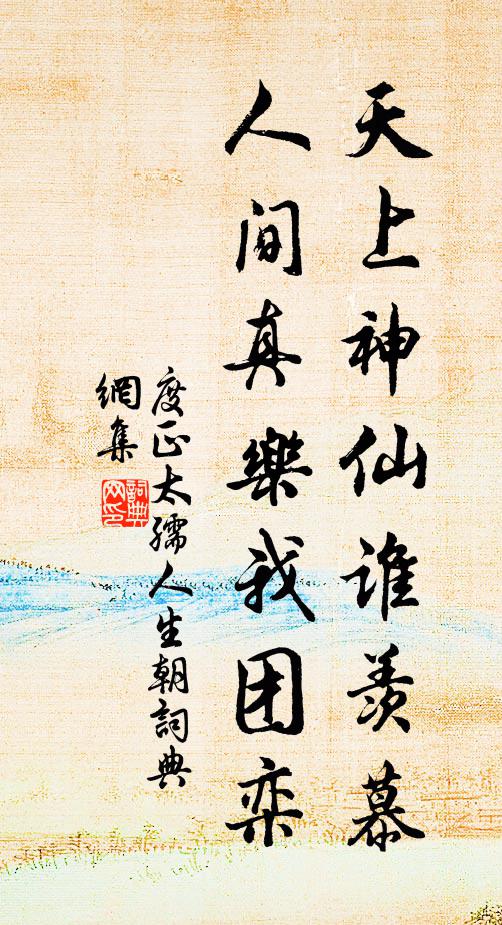 天上神仙谁羡慕
人间真樂我团栾
度正太孺人生朝詞典
網集
詞典
网印